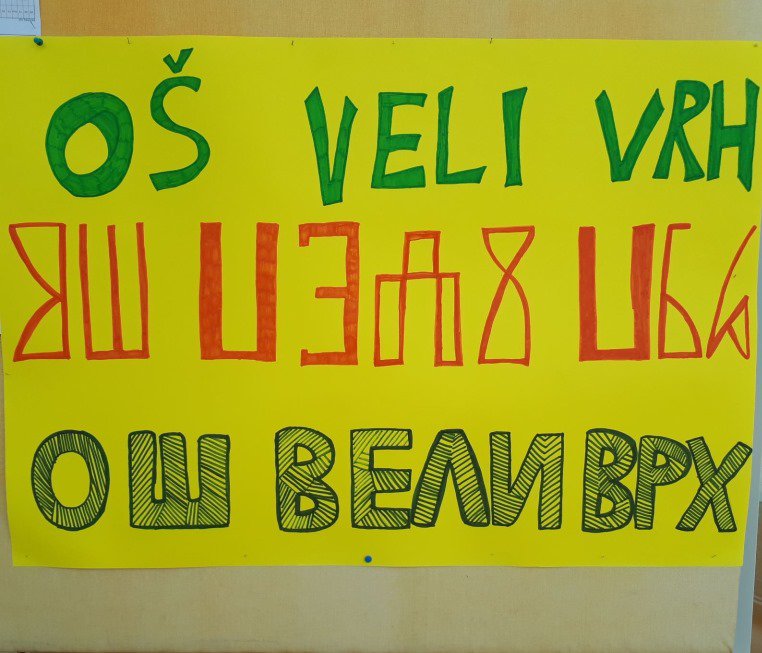 OŠ VELI VRH
ⰑⰞ ⰂⰅⰎⰋ ⰂⰓⰘ
ОШ ВЕЛИ ВРХ